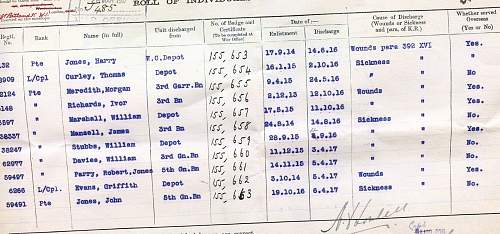 485
ROLL OF INDIVIDUAL
Regtl. No. Rank Name (in full) Unit discharged from No. of Badge and Certificate (To be completed at War Office) Date of :— Enlistment Discharge Cause of Discharge (Wounds or Sickness and para. of K.R.) Whether served Overseas (Yes or No)
132 Pte Jones, Harry W.O.Depot 155,653 17.9.14 14.6.16 Wounds para 392 XVI Yes.
3909 L/Cpl Curley, Thomas Depot 155,654 16.1.15 2.10.16 Sickness " No.
2124 Pte Meredith,Morgan 3rd Garr.Bn 155,655 9.4.15 24.5.16 " " No.
148 " Richards, Ivor 3rd Bn 155,656 2.12.13 12.10.16 Wounds " Yes.
697 " Marshall, William Depot 155,657 17.5.15 11.10.16 " " Yes.
38337 " Mansell, James 3rd Bn 155,658 24.8.14 14.8.16 Sickness " Yes.
38247 " Stubbs, William Depot 155,659 28.9.15 .9.16 " " No.
62977 " Davies, William 3rd Gn.Bn 155,660 11.12.15 3.4.17 " " No.
59497 " Parry, Robert,Jones 5th Gn.Bn 155,661 14.11.15 5.4.17 " " No.
6266 L/Cpl. Evans, Griffith Depot 155,662 3.10.14 5.4.17 Wounds " Yes.
59491 Pte Jones, John 5th Gn.Bn 155,663 19.10.16 5.4.17 Sickness " No.